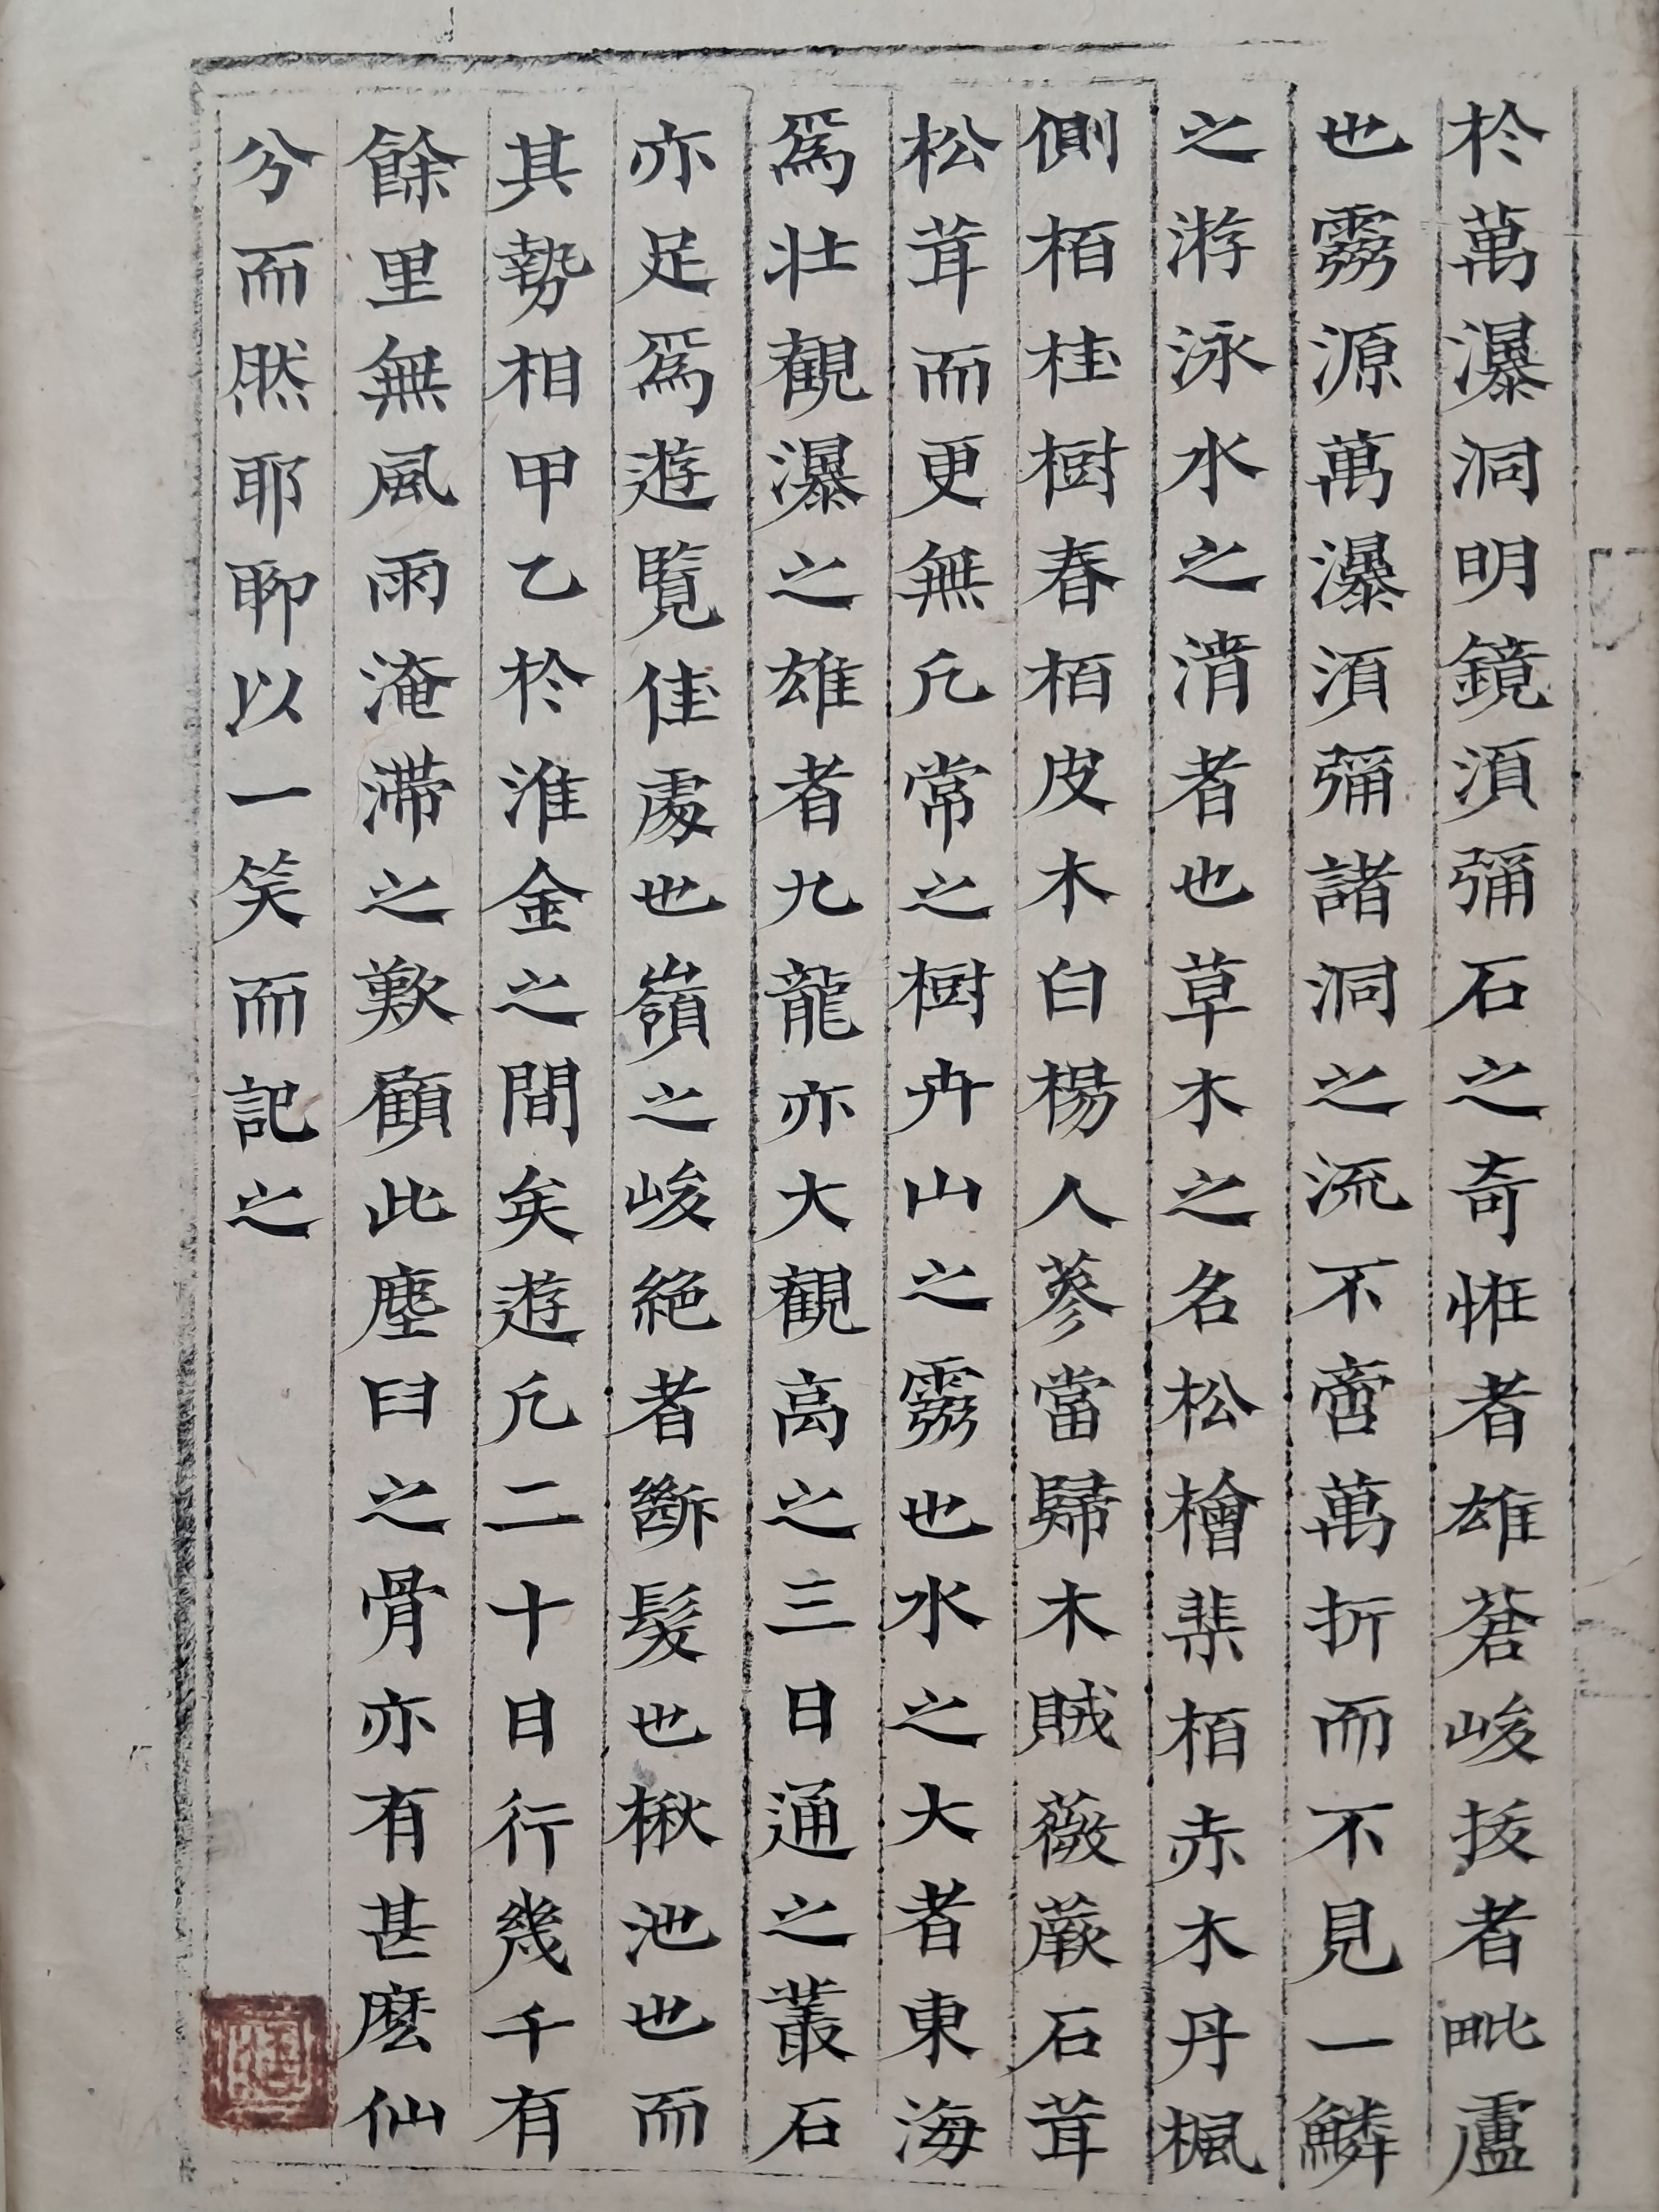 於萬瀑洞明鏡須彌石之奇恠者雄蒼峻拔者毗盧
也霧源萬瀑須彌諸洞之流不啻萬折而不見一鱗
之游泳水之清者也草木之名松檜棐栢赤木丹楓
側栢桂樹春栢皮木白楊人蔘當歸木賊薇蕨石茸
松茸而更無凡常之樹卉山之霧也水之大者東海
爲壯觀瀑之雄者九龍亦大觀高之三日通之叢石
亦足爲遊覽佳處也嶺之峻絶者斷髮也楸池也而
其勢相甲乙於淮金之間矣遊凡二十日行幾千有
餘里無風雨淹滯之歎顧此塵臼之骨亦有甚麽仙
分而然耶聊以一笑而記之